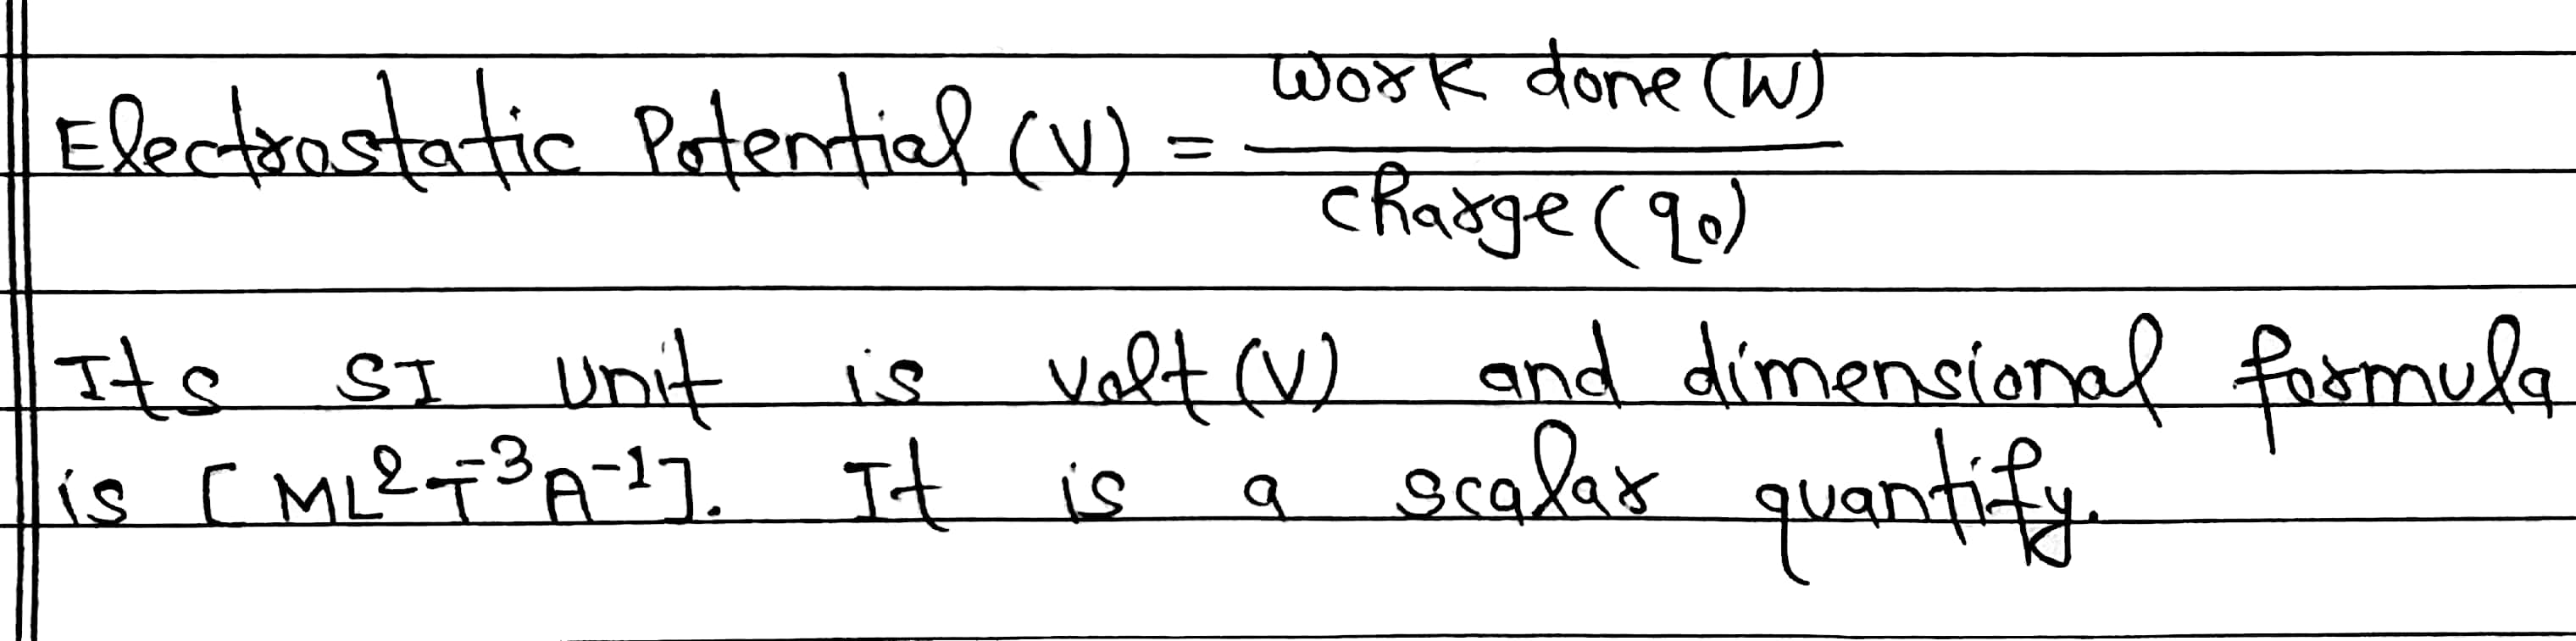 Electrostatic Potential (V) = Work done (W) / Charge (q₀)
Its SI Unit is volt (V) and dimensional formula
is [ML²T⁻³A⁻¹]. It is a scalar quantify.